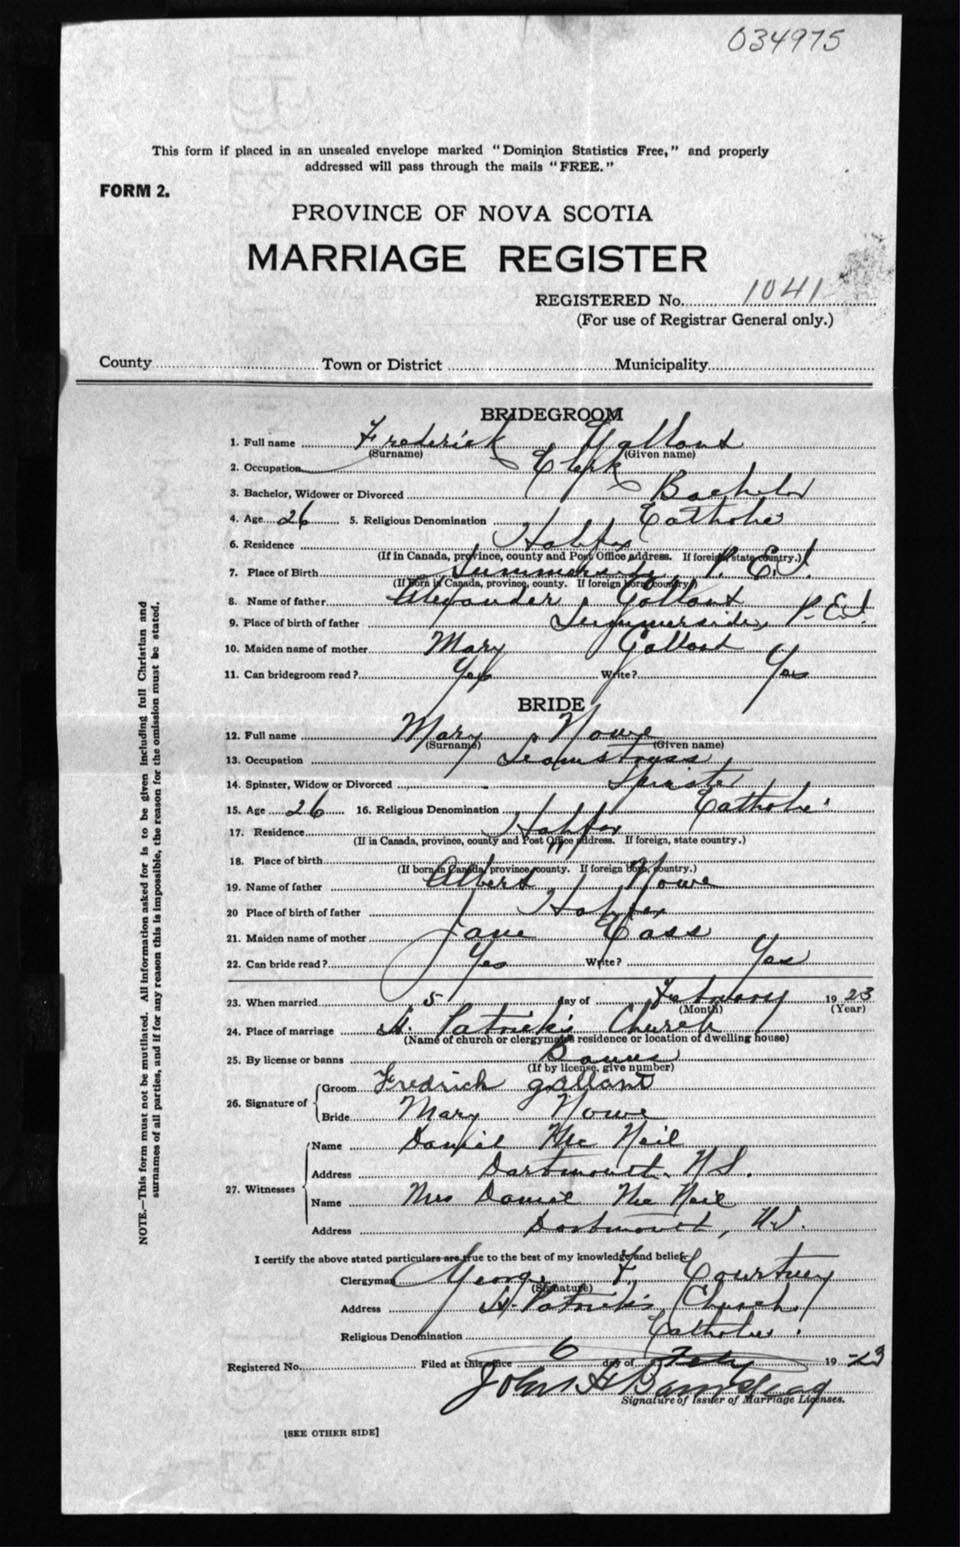 034975
This form if placed in an unsealed envelope marked "Dominion Statistics Free," and properly
addressed will pass through the mails "FREE."
FORM 2.
PROVINCE OF NOVA SCOTIA
MARRIAGE REGISTER
REGISTERED No. 1041
(For use of Registrar General only.)
County Town or District Municipality
BRIDEGROOM
1. Full name Frederick Gallant
(Surname) (Given name)
2. Occupation Clerk
3. Bachelor, Widower or Divorced Bachelor
4. Age 26 5. Religious Denomination Catholic
6. Residence Halifax
(If in Canada, province, county and Post Office address. If foreign, state country.)
7. Place of Birth Summerside, P.E.I.
(If born in Canada, province, county. If foreign born, country.)
8. Name of father Alexander Gallant
9. Place of birth of father Summerside, P.E.I.
10. Maiden name of mother Mary Gallant
11. Can bridegroom read? Yes Write? Yes
BRIDE
12. Full name Mary Nowe
(Surname) (Given name)
13. Occupation Seamstress
14. Spinster, Widow or Divorced Spinster
15. Age 26 16. Religious Denomination Catholic
17. Residence Halifax
(If in Canada, province, county and Post Office address. If foreign, state country.)
18. Place of birth "
(If born in Canada, province, county. If foreign born, country.)
19. Name of father Albert Nowe
20 Place of birth of father Halifax
21. Maiden name of mother Jane Cass
22. Can bride read? Yes Write? Yes
23. When married 5 day of February 1923
(Month) (Year)
24. Place of marriage St. Patrick's Church
(Name of church or clergyman's residence or location of dwelling house)
25. By license or banns Banns
(If by license, give number)
26. Signature of Groom Fredrich gallant
Bride Mary Nowe
27. Witnesses Name Daniel Mc Neil
Address Dartmouth, N.S.
Name Mrs Daniel Mc Neil
Address Dartmouth, N.S.
I certify the above stated particulars are true to the best of my knowledge and belief.
Clergyman George F. Courtney
(Signature)
Address St. Patrick's Church
Religious Denomination Catholic.
Registered No. Filed at this office 6 day of Feby 1923
John H Barnstead
Signature of Issuer of Marriage Licenses.
[SEE OTHER SIDE]
NOTE.—This form must not be mutilated. All information asked for is to be given including full Christian and
surnames of all parties, and if for any reason this is impossible, the reason for the omission must be stated.